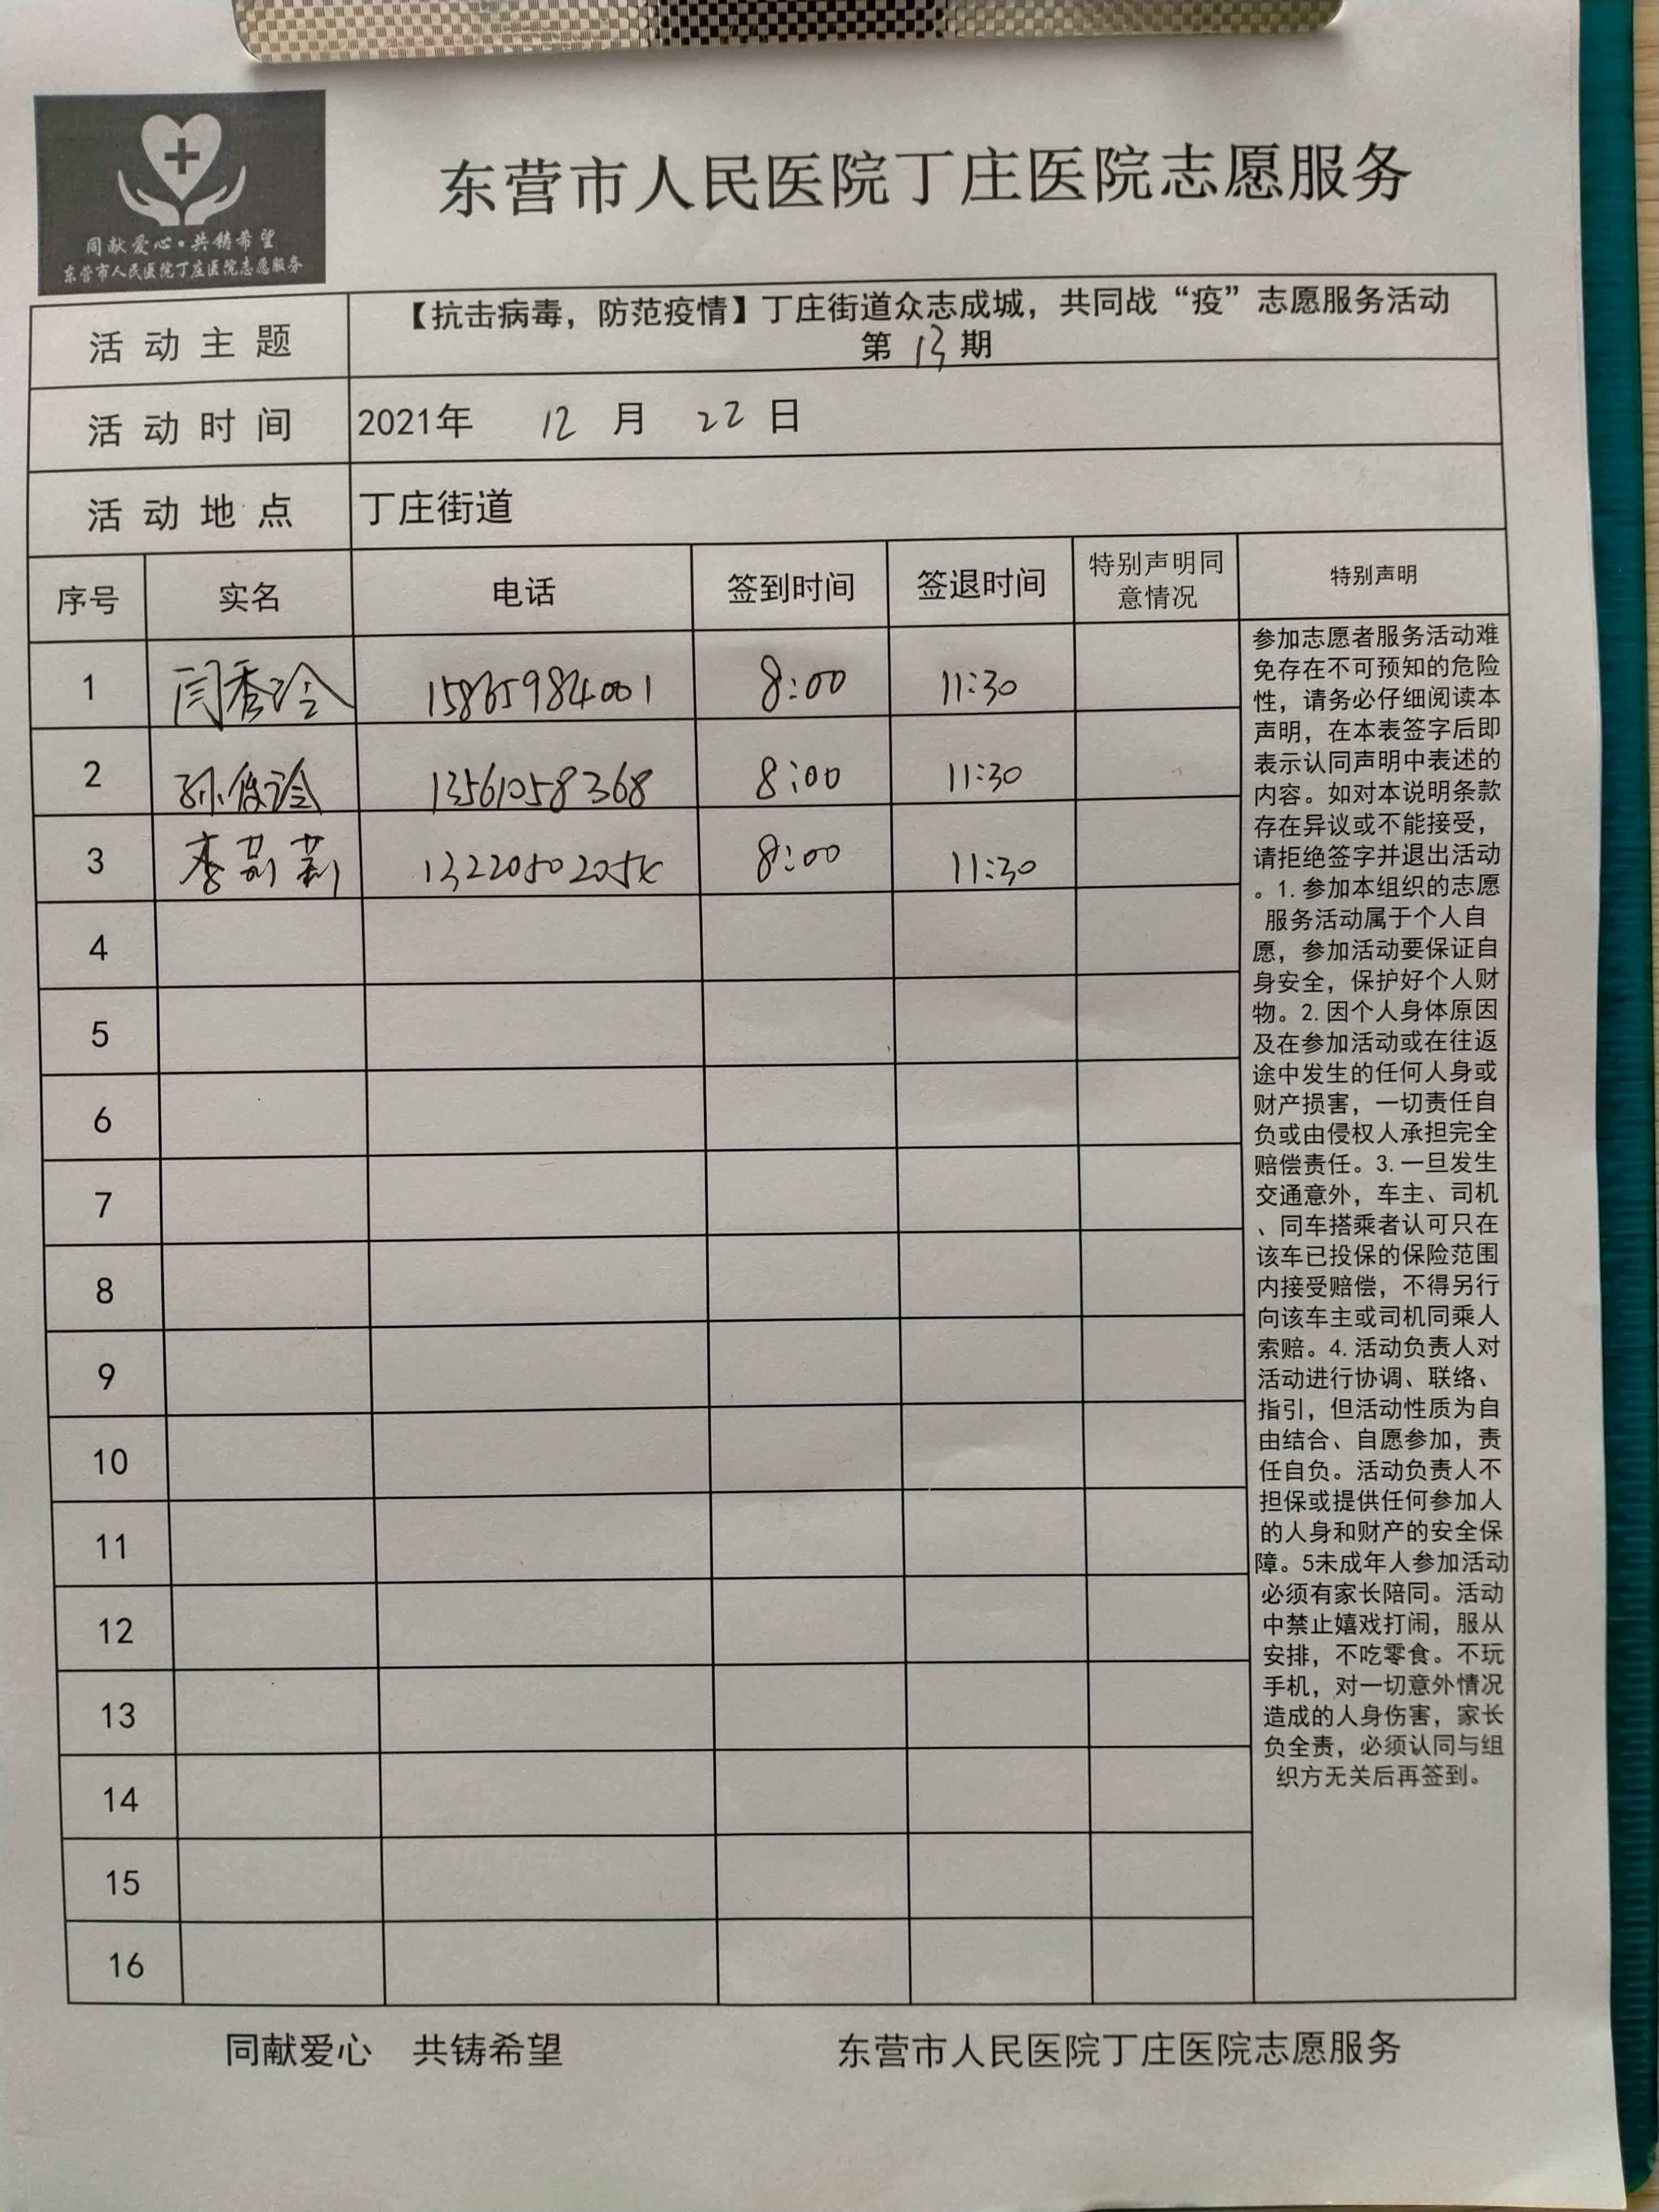 同献爱心·共铸希望
东营市人民医院丁庄医院志愿服务
东营市人民医院丁庄医院志愿服务
活动主题
【抗击病毒，防范疫情】丁庄街道众志成城，共同战“疫”志愿服务活动
第 13 期
活动时间 2021年 12 月 22 日
活动地点 丁庄街道
序号 实名 电话 签到时间 签退时间 特别声明同意情况 特别声明
1 闫秀玲 15865984001 8:00 11:30
2 孙俊玲 13561058368 8:00 11:30
3 李莉莉 8:00 11:30
4
5
6
7
8
9
10
11
12
13
14
15
16
参加志愿者服务活动难
免存在不可预知的危险
性，请务必仔细阅读本
声明，在本表签字后即
表示认同声明中表述的
内容。如对本说明条款
存在异议或不能接受，
请拒绝签字并退出活动
。1.参加本组织的志愿
服务活动属于个人自
愿，参加活动要保证自
身安全，保护好个人财
物。2.因个人身体原因
及在参加活动或在往返
途中发生的任何人身或
财产损害，一切责任自
负或由侵权人承担完全
赔偿责任。3.一旦发生
交通意外，车主、司机
、同车搭乘者认可只在
该车已投保的保险范围
内接受赔偿，不得另行
向该车主或司机同乘人
索赔。4.活动负责人对
活动进行协调、联络、
指引，但活动性质为自
由结合、自愿参加，责
任自负。活动负责人不
担保或提供任何参加人
的人身和财产的安全保
障。5未成年人参加活动
必须有家长陪同。活动
中禁止嬉戏打闹，服从
安排，不吃零食。不玩
手机，对一切意外情况
造成的人身伤害，家长
负全责，必须认同与组
织方无关后再签到。
同献爱心 共铸希望 东营市人民医院丁庄医院志愿服务